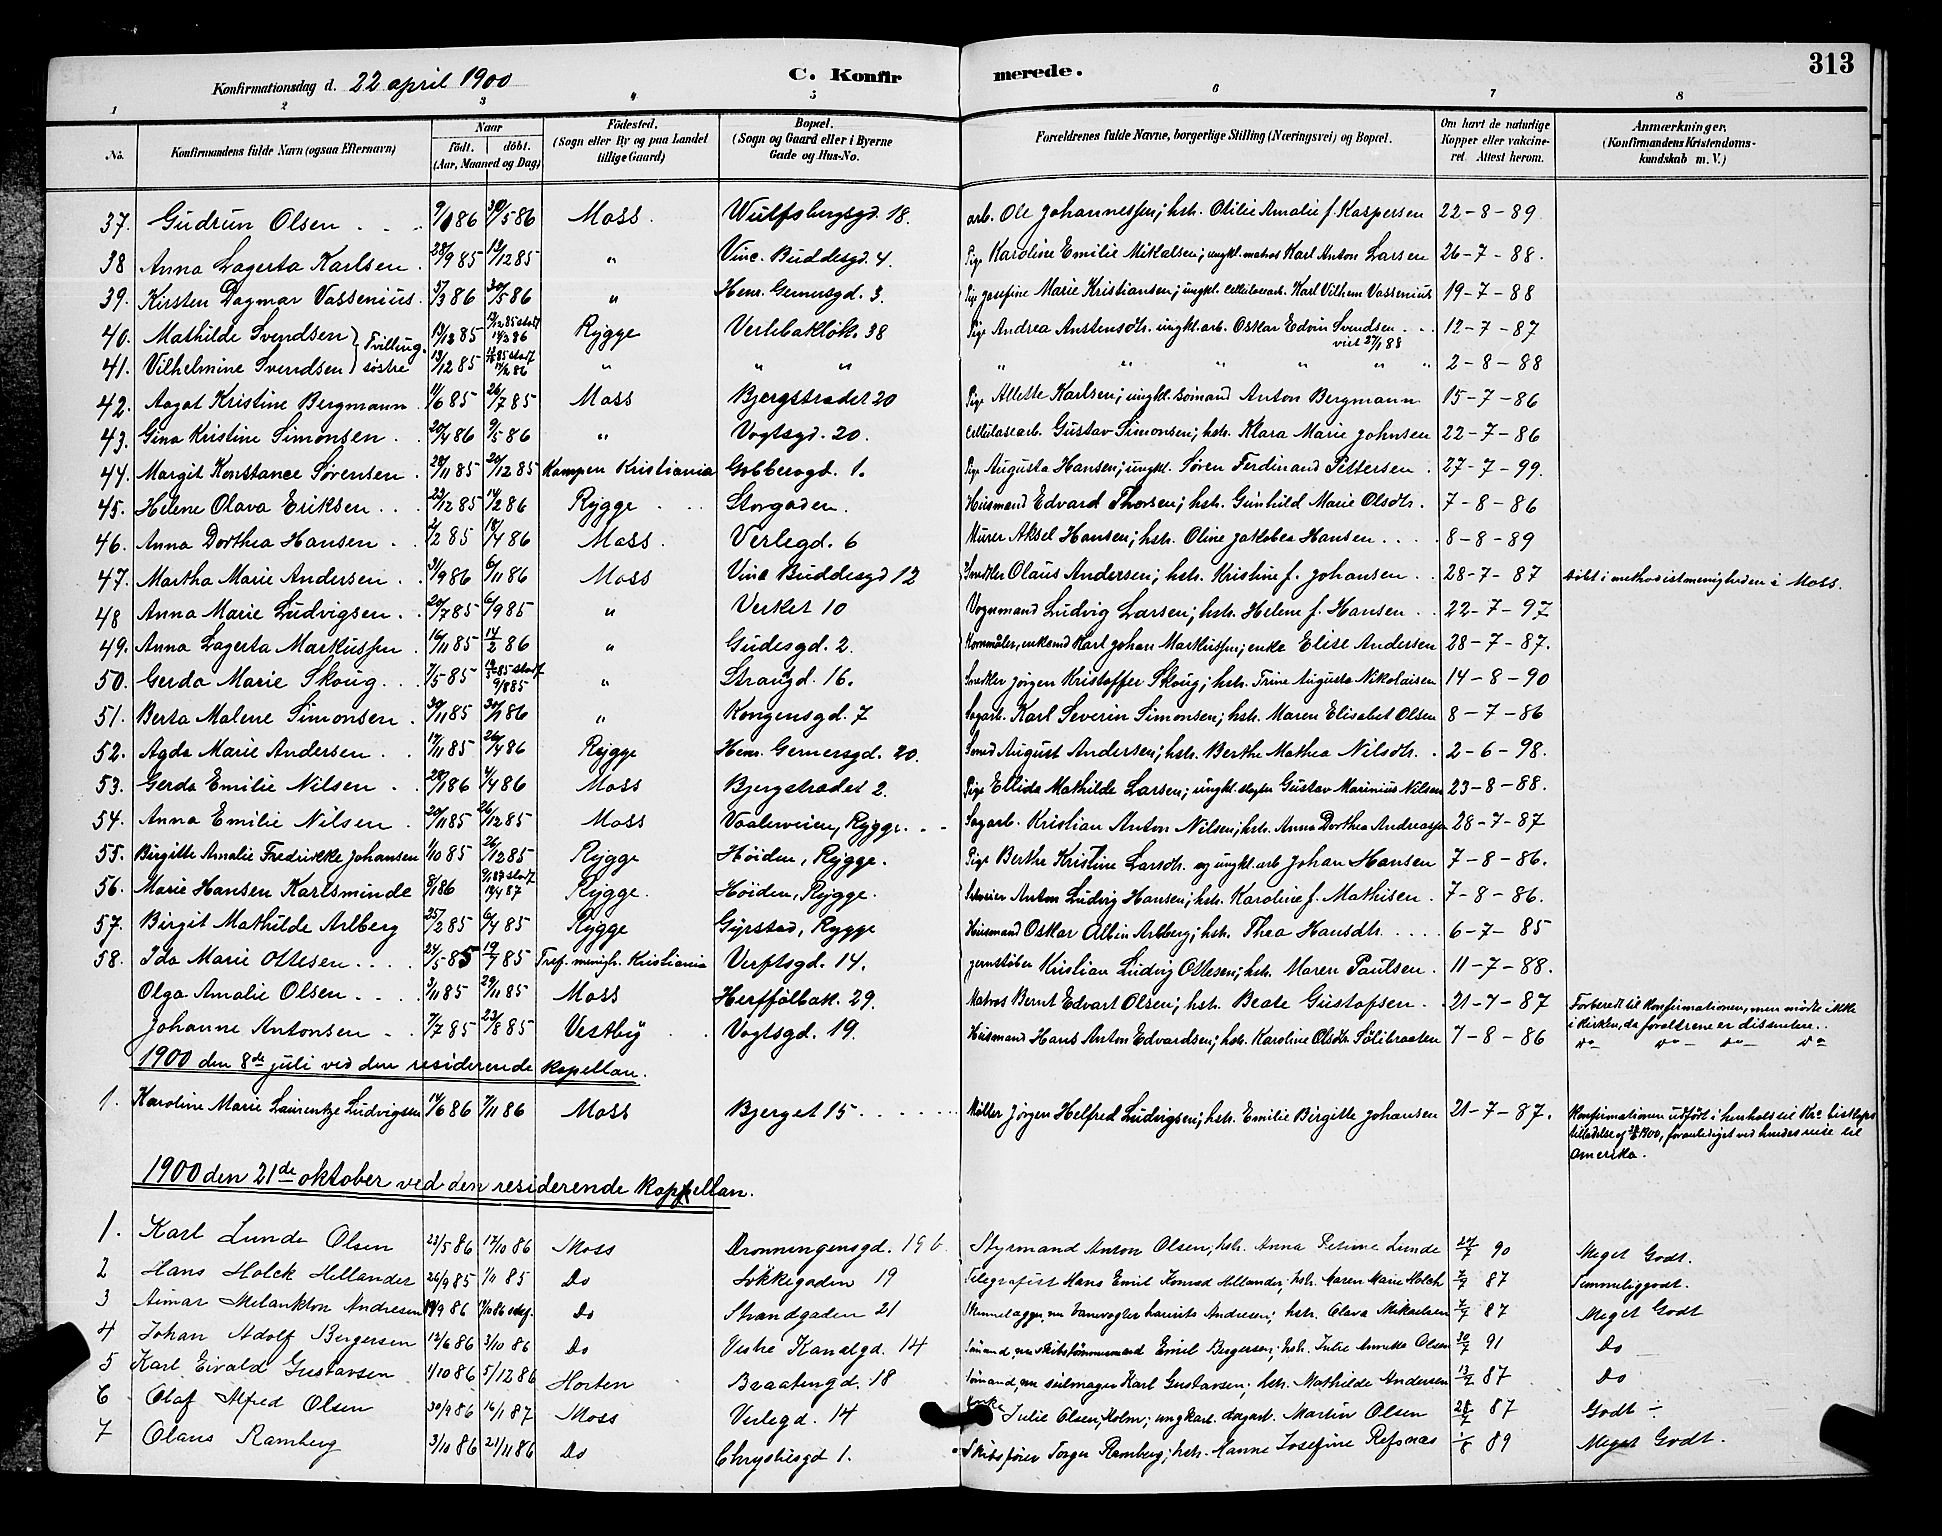 313
Konfirmationsdag d. 22 april 1900 C. Konfir merede.
1 2 3 4 5 6 7 8
No. Konfirmandens fulde Navn (ogsaa Efternavn) Naar födt. döbt. (Aar, Maaned og Dag) Födested. (Sogn eller By og paa Landet tillige Gaard) Bopæl. (Sogn og Gaard eller i Byerne Gade og Hus-No. Forældrenes fulde Navne, borgerlige Stilling (Næringsvei) og Bopæl. Om havt de naturlige Kopper eller vakcineret. Attest herom. Anmærkninger. (Konfirmandens Kristendomskundskab m. V.)
37. Gudrun Olsen 9/1 86 30/5 86 Moss. Wulfsbergsgd. 18. arb. Ole Johannessen; hstr. Otilie Amalie f. Kaspersen 22-8-89
38 Anna Lagerta Karlsen 28/9 85 13/12 85 " Vinc. Buddesgd. 4. Pige Karoline Emilie Mikalsen; ungkl. matros Karl Anton Larsen 26-7-88.
39. Kirsten Dagmar Vassenius 3/3 86 30/5 86 " Henr. Gernersgd. 3. Pige Josefine Marie Kristiansen; ungkl. cellulosearb. Karl Vilhem Vassenius 19-7-88
40. Mathilde Svendsen } Tvilling 13/12 85 14/3 86 Rygge Verlebakløk. 38 Pige Andrea Anstensdtr. ungkl. arb. Oskar Edvin Svendsen 12-7-87
viet 27/1 88
41. Vilhelmine Svendsen } søstre 13/12 85 " " " " " " " " " 2-8-88
42. Aagot Kristine Bergmann 11/6 85 26/7 85 Moss Bjergstradet 20 Pige Allette Karlsen; ungkl. sömand Anton Bergmann 15-7-86
43. Gina Kristine Simonsen 20/4 86 9/5 86 " Vogtsgd. 20. cellulosearb. Gustav Simonsen; hstr. Klara Marie Johnsen 22-7-86
44. Margit Konstance Sørensen 28/11 85 20/12 85 Kampen Kristiania Gobberogd. 1. Pige Augusta Hansen; ungkl. Søren Ferdinand Pettersen 27-7-99.
45. Helene Olava Eriksen 23/12 85 14/2 86 Rygge Storgaden. Husmand Edvard Thorsen; hstr. Gunhild Marie Olsdtr. 7-8-86
46. Anna Dorthea Hansen 2/2 85 18/4 86 Moss. Verlegd. 6 Murer Aksel Hansen; hstr. Oline Jakobea Hansen 8-8-89
47. Martha Marie Andersen 3/9 86 6/11 86 Moss Vinc Buddesgd 12 Snedker Olaus Andersen; hstr. Kristine f. Johansen 28-7-87 döbt i methodistmenigheden i Moss.
48 Anna Marie Ludvigsen 20/7 85 6/9 85 " Verket 10 Vognmand Ludvig Larsen; hstr. Helene f. Hansen 22-7-97
49. Anna Lagerta Markussen 16/11 85 14/2 86 " Gudesgd. 2. Kornmåler, enkemd Karl Johan Markussen; enke Elise Andersen 28-7-87.
50. Gerda Marie Skoug 7/5 85 9/8 85 " Strangd. 16. Snedker Jørgen Kristoffer Skoug; hstr. Trine Augusta Nikolaisen 14-8-90
51. Berta Malene Simonsen 30/11 85 " Kongensgd. 7 Sagarb. Karl Severin Simonsen; hstr. Maren Elisabet Olsen 8-7-86
52. Agda Marie Andersen 17/11 85 26/4 86 Rygge Henr. Gernersgd. 20. Smed August Andersen; hstr. Berthe Mathea Nilsdtr. 2-6-98.
53. Gerda Emilie Nilsen 28/1 86 4/4 86 Moss Bjergstradet 2. Pige Ellida Mathilde Larsen; ungkl. slagter Gustav Marinius Nilsen 23-8-88.
54. Anna Emilie Nilsen 20/11 85 26/12 85 Moss Vaalerveien, Rygge. Sagarb. Kristian Anton Nilsen; hstr. Anna Dorthea Andreassen 28-7-87
55. Birgitte Amalie Fredrikke Johansen 1/10 85 26/12 85 Rygge Höiden, Rygge. Pige Berthe Kristine Larsdtr. og ungkl. arb. Johan Hansen 7-8-86.
56. Marie Hansen Karlsminde 8/1 86 Rygge. Höiden, Rygge. Anton Ludvig Hansen; hstr. Karoline f. Mathisen. 7-8-86.
57. Birgit Mathilde Arlberg 25/2 85 6/4 85 Rygge Gyrstad, Rygge Husmand Oskar Albin Arlberg; hstr. Thea Hansdtr. 6-7-85
58. Ida Marie Ottesen 24/5 85 19/7 85 Tref. menigh. Kristiania Verftsgd. 14. Jernstøber Kristian Ludvig Ottesen; hstr. Maren Paulsen. 11-7-88.
Olga Amalie Olsen 3/11 85 29/11 85 Moss Herfölbak. 29. Matros Bernt Edvart Olsen; hstr. Beate Gustafsen 21-7-87 Forberedt til konfirmationen, men mödte ikke
i kirken, da forældrene er dissentere.
Johanne Antonsen 7/7 85 23/8 85 Vestby Vogtsgd. 19. Husmand Hans Anton Edvardsen; hstr. Karoline Olsdtr. Sölibraaten 7-8-86 Do Do Do Do
1900 den 8de juli ved den residerende kapellan.
1. Karoline Marie Laurentze Ludvigsen 14/6 86 7/11 86 Moss Bjerget 15 Møller Jörgen Helfred Ludvigsen; hstr. Emilie Birgitte Johansen 21-7-87. Konfirmationen udfört i henhold til Kra. bistkops
tilladelse af 1900, foranlediget ved hendes reise til
Amerika.
1900 den 21de oktober ved den residerende kapellan.
1. Karl Lunde Olsen 23/5 86 17/10 86 Moss Dronningensgd. 19 b. Styrmand Anton Olsen; hstr. Anna Petrine Lunde 24/7 90 Meget Godt.
2 Hans Holck Hellander 26/9 85 1/11 85 Do Lökkegaden 19 Telegrafist Hans Emil Konrad Hellander; hstr. Maren Marie Holck 7/7 87 Temmeliggodt.
3 Aimar Melankton Andresen Do Strandgaden 21 Laurits Andersen; hstr. Olava Mikaelsen 7/7 87 Meget Godt
4 Johan Adolf Bergersen 12/6 86 3/10 86 Do Vestre Kanalgd. 14 Sömand, nu skibstömmermand Emil Bergersen; hstr. Julie Annette Olsen 30/7 91 Do
5 Karl Eivald Gustavsen 1/10 86 5/12 86 Horten Braatengd. 18 Sömand, nu seilmager Karl Gustavsen; hstr. Mathilde Andersen 13/7 87 Do
6 Olaf Alfred Olsen 30/9 86 16/1 87 Moss Verlegd. 14 Enke Julie Olsen, Holm; ungkarl. Martin Olsen 28/7 87 Godt ÷
7 Olaus Ramberg 3/10 86 21/11 86 Do Chrystiesgd 1. Skibsförer Torger Ramberg; hstr. Hanne Josefine Refsnæs 1/8 89 Meget Godt.